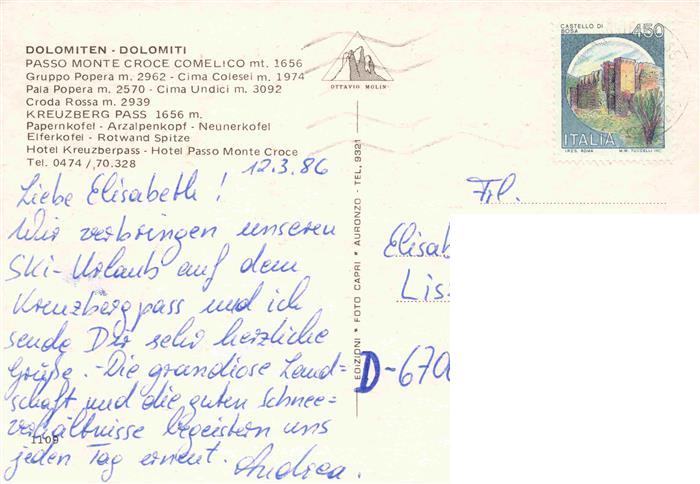 DOLOMITEN - DOLOMITI
PASSO MONTE CROCE COMELICO mt. 1656
Gruppo Popera m. 2962 - Cima Colesei m. 1974
Paia Popera m. 2570 - Cima Undici m. 3092
Croda Rossa m. 2939
KREUZBERG PASS 1656 m.
Papernkofel - Arzalpenkopf - Neunerkofel
Elferkofel - Rotwand Spitze
Hotel Kreuzberpass - Hotel Passo Monte Croce
Tel. 0474 /,70.328
12.3.86
Liebe Elisabeth !
Wir verbringen unseren
Ski-Urlaub auf dem
Kreuzbergpass und ich
sende Dir sehr herzliche
Grüße. - Die grandiose Land-
schaft und die guten Schnee-
verhältnisse begeistern uns
jeden Tag erneut.
Andrea.
1109
OTTAVIO MOLIN
EDIZIONI * FOTO CAPRI * AURONZO - TEL. 9321
CASTELLO DI
BOSA
450
ITALIA
I.P.Z.S. ROMA
Frl.
Elisab
Liss
D-670